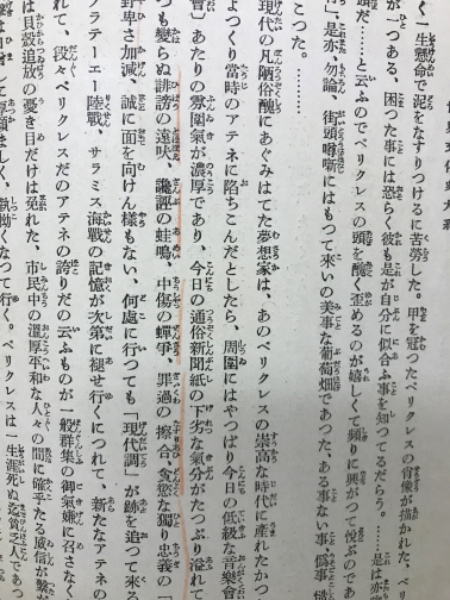 世界文化史大系
く一生懸命で泥をなすりつけるに苦勞した。甲を冠つたペリクレスの肖像が描かれた、ペリ
が一つある、困つた事には恐らく彼も是が自分に似合ふ事を知つてるだらう。……是は亦
頭だ……と云ふのでペリクレスの頭を醜く歪めるのが嬉しくて頻りに興がつて悦ぶのであ
、是亦勿論、街頭噂噺にはもつて來いの美事な葡萄畑であつた、ある事ない事、僞事、
こつた。………
現代の凡陋俗醜にあぐみはてた夢想家は、あのペリクレスの崇高な時代に產れたかつ
よつくり當時のアテネに陷ちこんだとしたら、周圍にはやつぱり今日の低級な音樂會
會〕あたりの雰圍氣が濃厚であり、今日の通俗新聞紙の下劣な氣分がたつぷり溢れて
つも變らぬ誹謗の遠吠、讒誣の蛙鳴、中傷の蟬爭、罪過の擦合、貪慾な獨り忠義の「
野卑さ加減、誠に面を向けん樣もない、何處に行つても「現代調」が跡を追つて來る
プラテーエー陸戰、サラミス海戰の記憶が次第に褪せ行くにつれて、新たなアテネの
れて、段々ペリクレスだのアテネの誇りだの云ふものが一般群集の御氣嫌に召さなく
は貝殼追放の憂き目だけは免れた、市民中の溫厚平和な人々の間に確乎たる威信が繫
ましく、執拗くなつて行く。ペリクレスは一生涯死ぬ迄貧乏人であつ